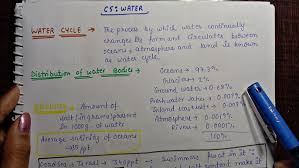 C5: WATER
WATER CYCLE → The process by which water continually
changes its form and circulates between
oceans, atmosphere and land is known
as water cycle.
Distribution of Water Bodies → Oceans → 97.3%
Icecaps → 2%
Ground water → 0.68%
Freshwater lakes → 0.009%
Inland → 0.009%
Atmosphere → 0.0019%
Rivers → 0.0001%
100%
Amount of
salt (in grams) present
in 1000g of water
Average salinity of oceans
→ 35 ppt
Swimmers